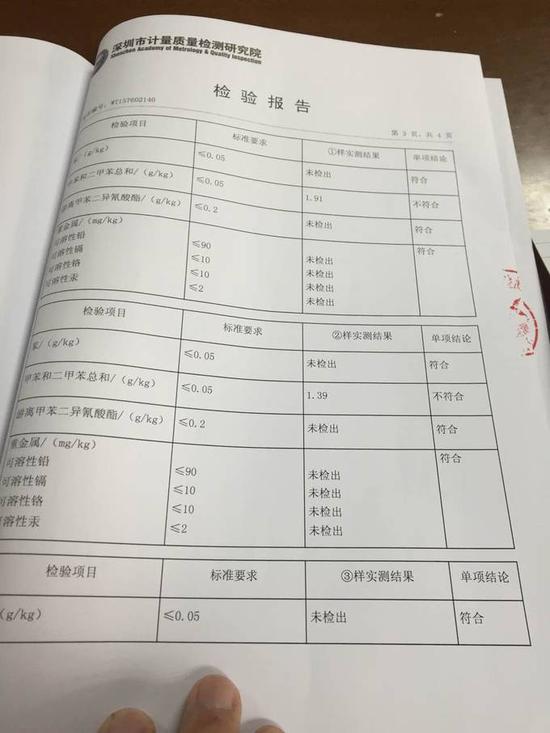 深圳市计量质量检测研究院
Shenzhen Academy of Metrology & Quality Inspection
检验报告
编号：WT157602140 第 3 页，共 4 页
检验项目 标准要求 ①样实测结果 单项结论
/（g/kg） ≤0.05 未检出 符合
苯和二甲苯总和/（g/kg） ≤0.05 1.91 不符合
游离甲苯二异氰酸酯/（g/kg） ≤0.2 未检出 符合
重金属/（mg/kg） 符合
可溶性铅 ≤90 未检出
可溶性镉 ≤10 未检出
可溶性铬 ≤10 未检出
可溶性汞 ≤2 未检出
检验项目 标准要求 ②样实测结果 单项结论
苯/（g/kg） ≤0.05 未检出 符合
甲苯和二甲苯总和/（g/kg） ≤0.05 1.39 不符合
游离甲苯二异氰酸酯/（g/kg） ≤0.2 未检出 符合
重金属/（mg/kg） 符合
可溶性铅 ≤90 未检出
可溶性镉 ≤10 未检出
可溶性铬 ≤10 未检出
可溶性汞 ≤2 未检出
检验项目 标准要求 ③样实测结果 单项结论
（g/kg） ≤0.05 未检出 符合